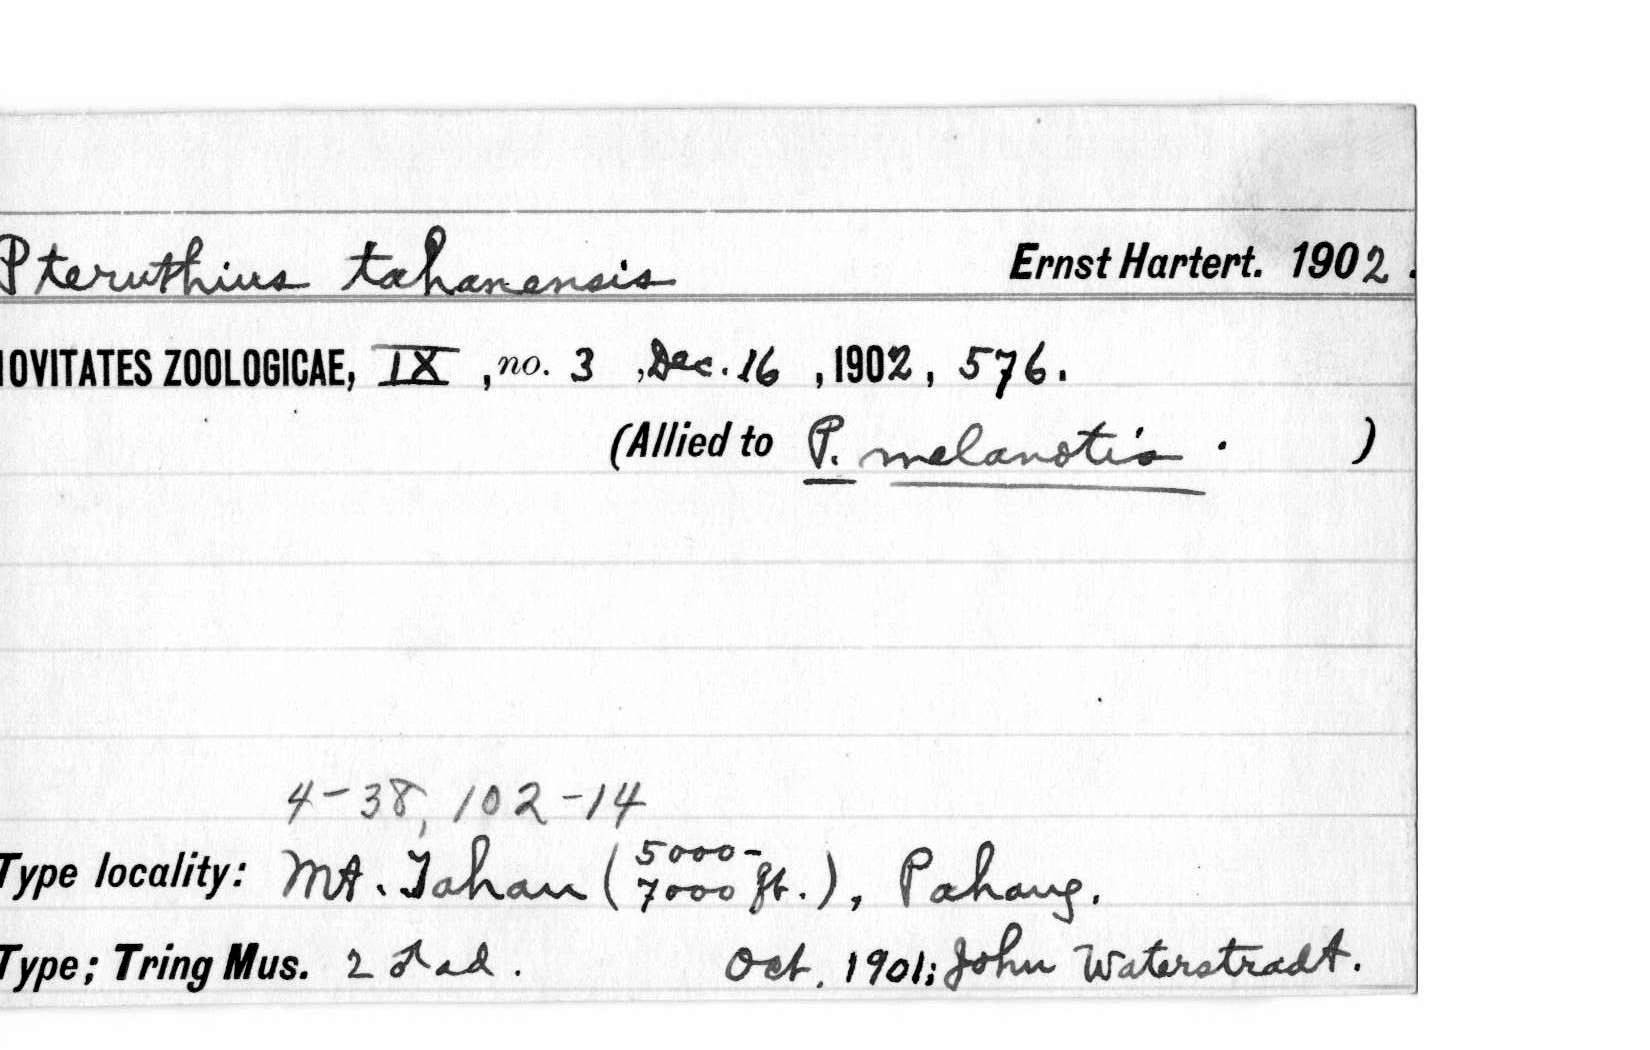 Pteruthius tahanensis Ernst Hartert. 1902.
NOVITATES ZOOLOGICAE, IX, no. 3, Dec. 16, 1902, 576.
(Allied to P. melanotis. )
4-38, 102-14
Type locality: Mt. Tahan (5000-7000 ft.), Pahang.
Type; Tring Mus. 2 ♂ ad. Oct. 1901; John Waterstradt.